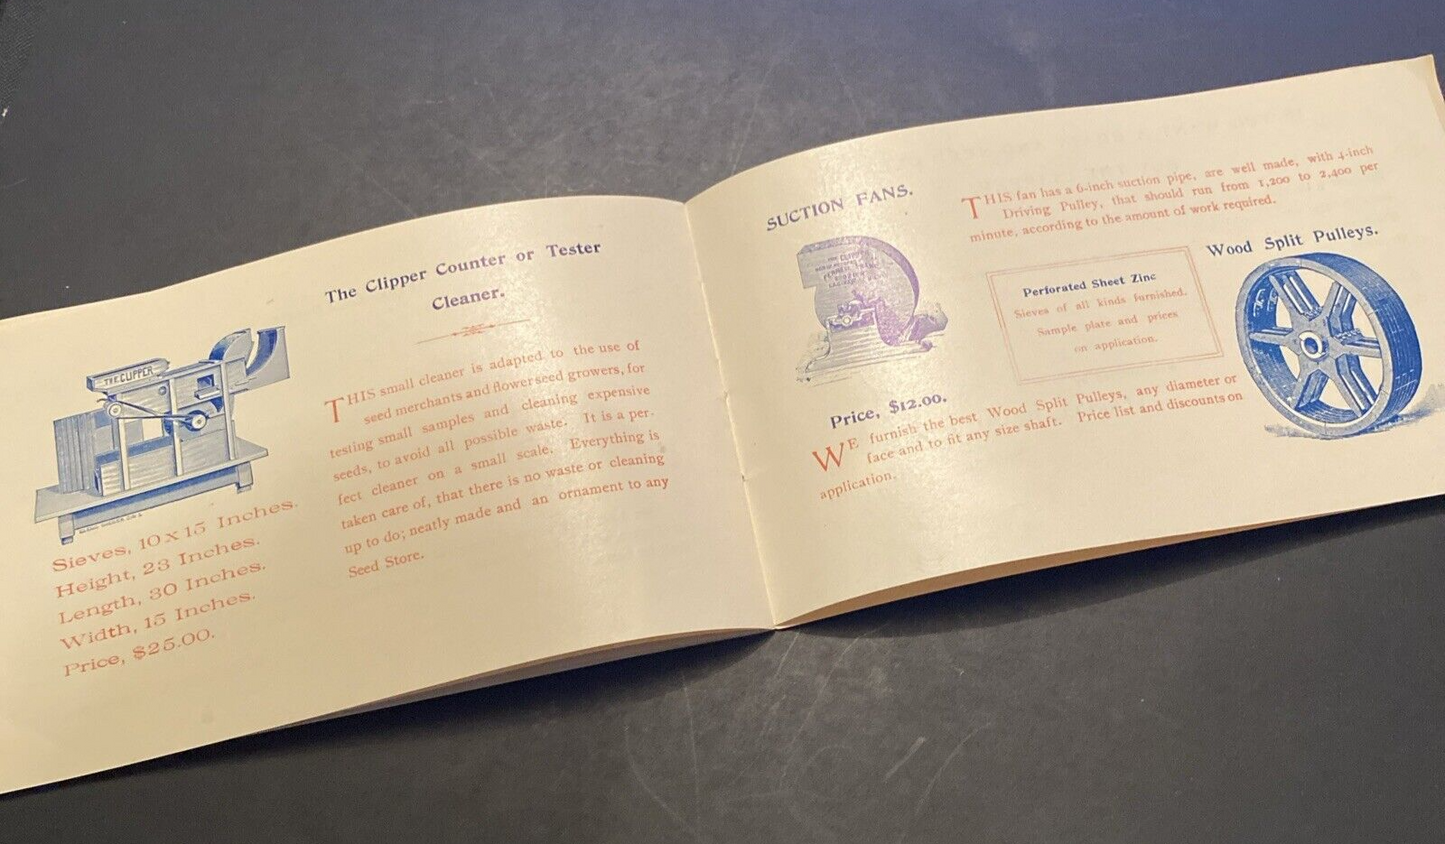 The Clipper Counter or Tester
Cleaner.
THE CLIPPER
Sieves, 10 x 15 Inches.
Height, 23 Inches.
Length, 30 Inches.
Width, 15 Inches.
Price, $25.00.
THIS small cleaner is adapted to the use of
seed merchants and flower seed growers, for
testing small samples and cleaning expensive
seeds, to avoid all possible waste. It is a per-
fect cleaner on a small scale. Everything is
taken care of, that there is no waste or cleaning
up to do; neatly made and an ornament to any
Seed Store.
SUCTION FANS.
THE CLIPPER
Price, $12.00.
THIS fan has a 6-inch suction pipe, are well made, with 4-inch
Driving Pulley, that should run from 1,200 to 2,400 per
minute, according to the amount of work required.
Perforated Sheet Zinc
Sieves of all kinds furnished.
Sample plate and prices
on application.
Wood Split Pulleys.
WE furnish the best Wood Split Pulleys, any diameter or
face and to fit any size shaft. Price list and discounts on
application.